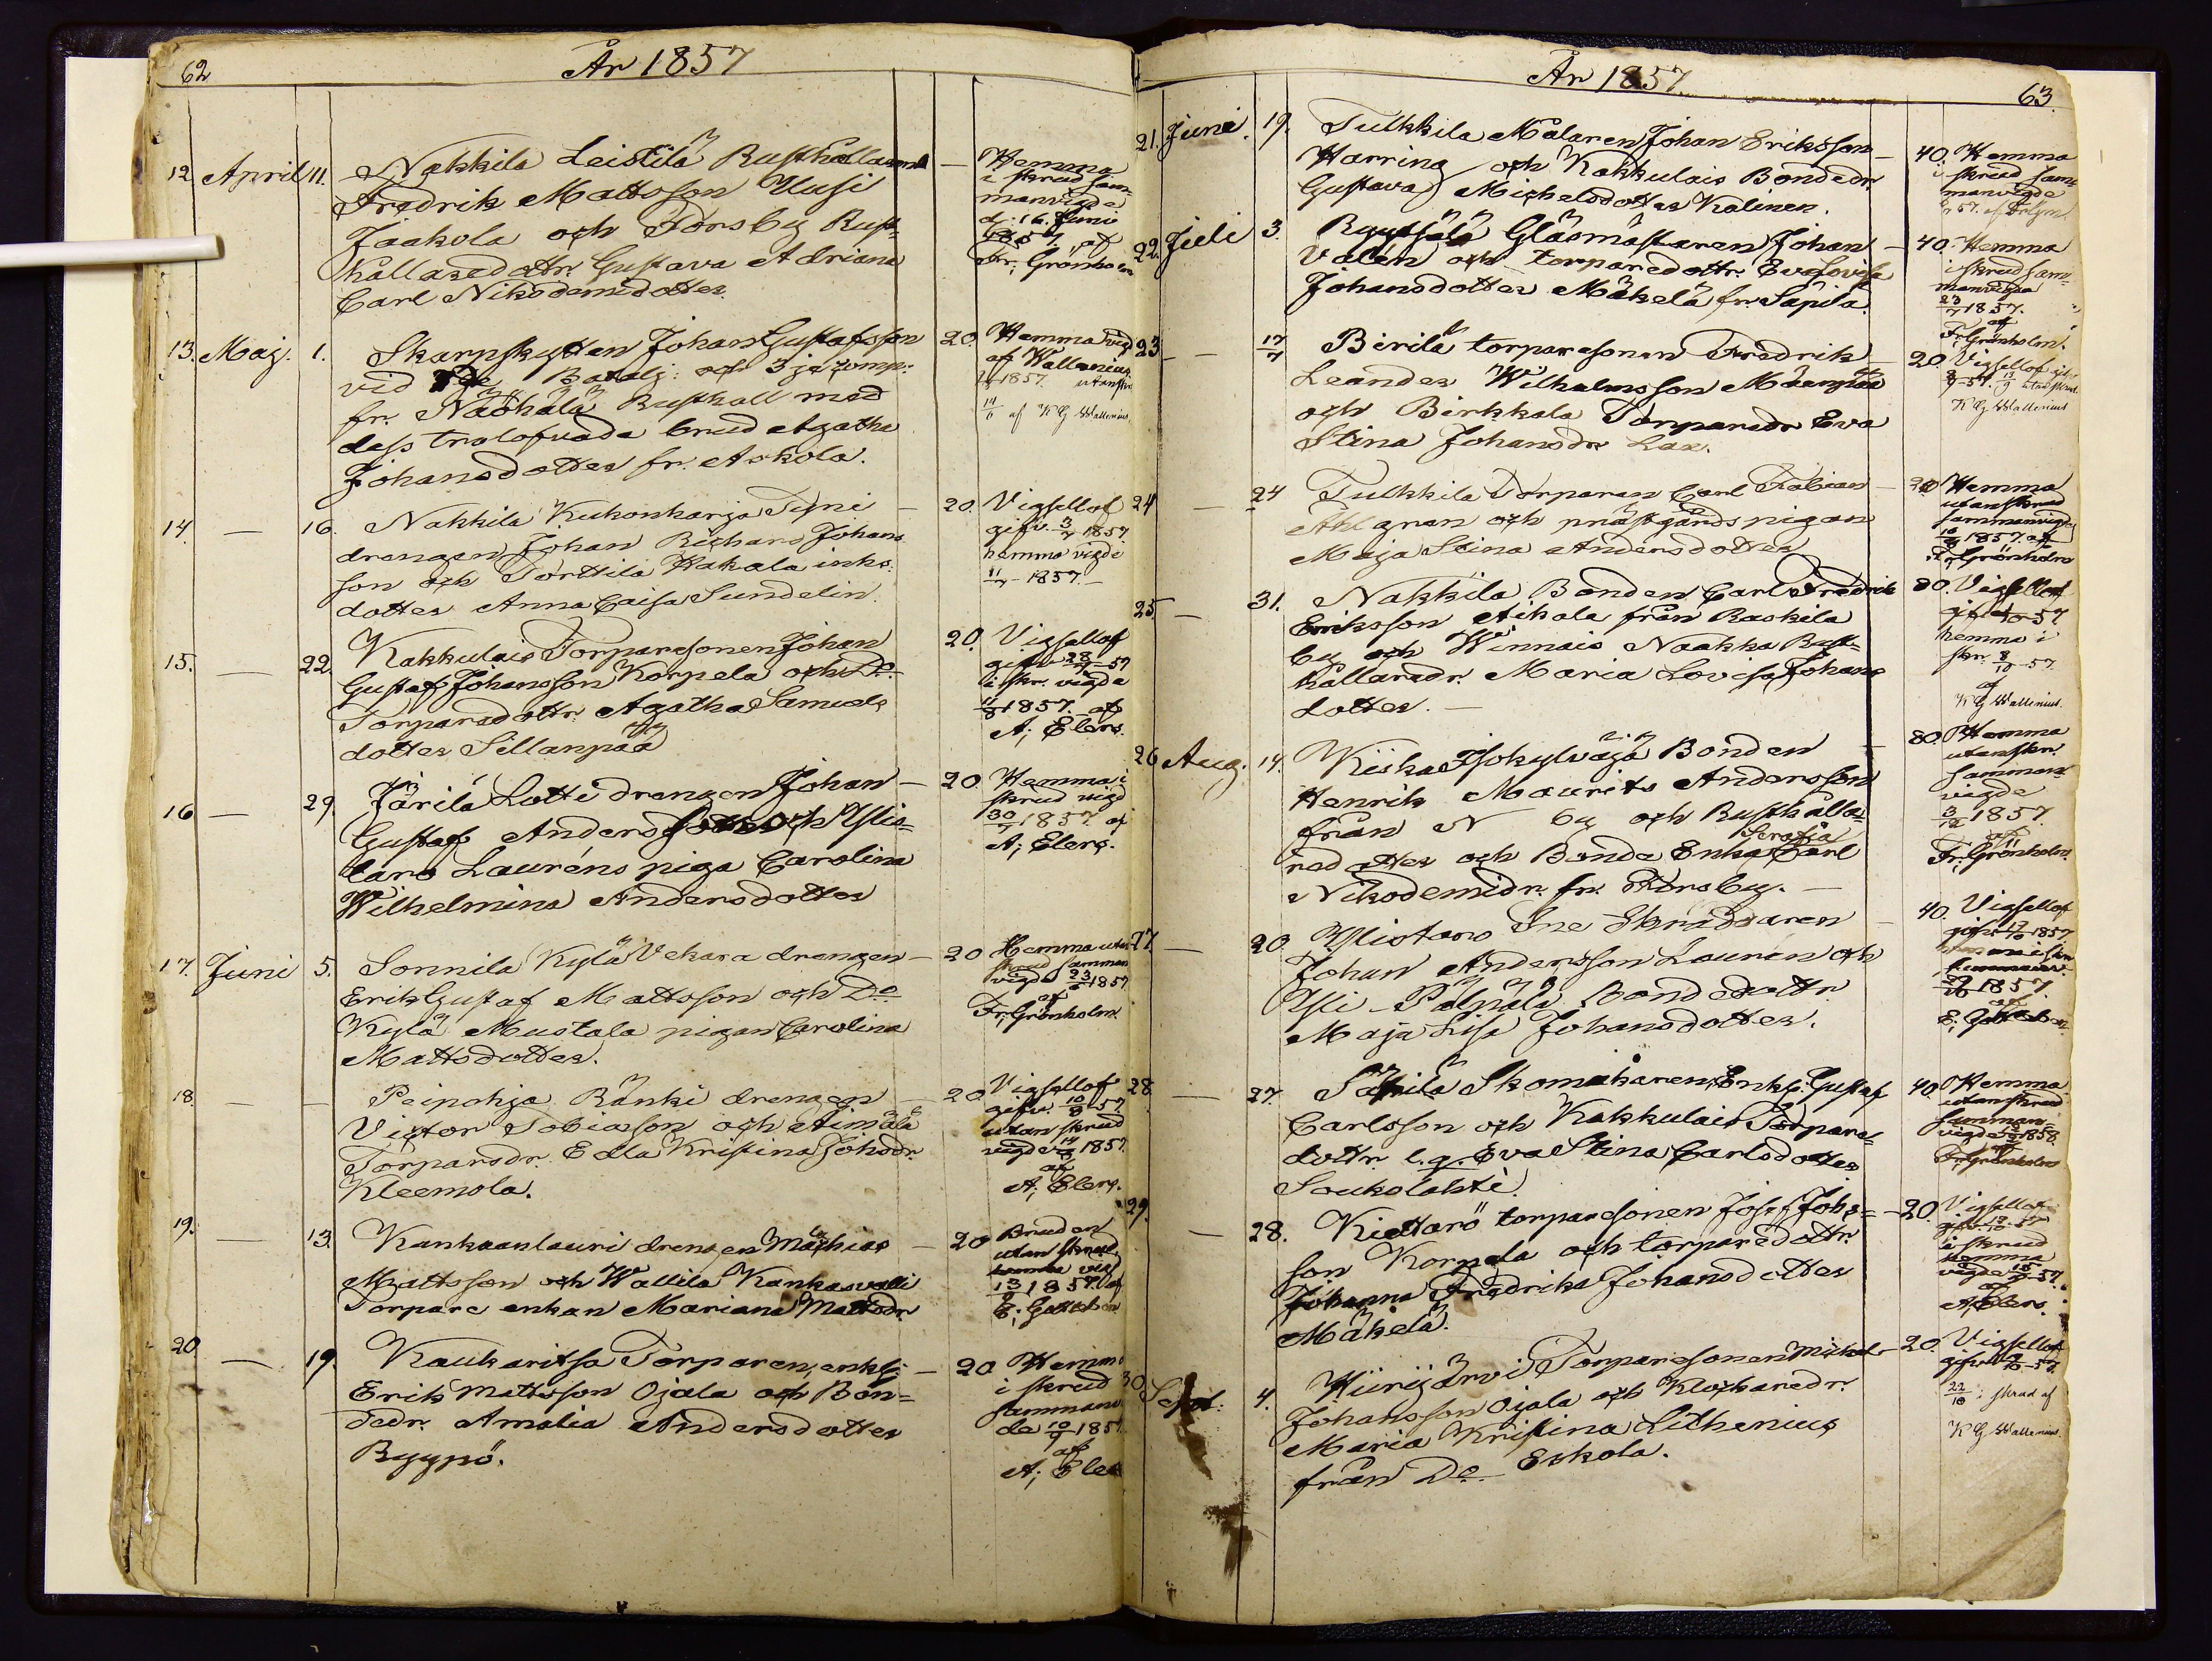 62
År 1857
12 April 11. Nakkila Leistilä Rusthållaren
Fredrik Mattsson Uusi
Jaakola och Forsby Rust-
hållaredottr. Gustava Adriana
Carl Nikodemidotter.
Hemma
i skrud sam
manvigde
d. 16. Juni
1857. af
Fr; Grönholm
13. Maj. 1. Skarpskytten Johan Gustafsson
vid Batalj: och 3je komp:
fr. Näöhälä Rusthall med
dess trolofvade brud Agatha
Johansdotter fr. Askola.
20. Hemma vigd
af Wallenius
1857. utan skr
af K G Wallenius
14. — 16. Nakkila Kukonharja Tyni
drengen Johan Richard Johans
son och Torttila Hakala inhs.
dotter Anna Caisa Sundelin.
20. Vigsellof
gifv. 3/7 1857
hemma vigde
11/7 - 1857. —
15. — 22. Kakkulais Torparesonen Johan
Gustaf Johansson Korpela och Do.
Torparedottr. Agatha Samuels
dotter Sillanpää
20. Vigsellof
gifv 28/7 - 57
i skr. vigde
11/8 1857. af
A; Elers.
16 — 29. Järilä Lotti drengen Johan
Gustaf Andersson och Ylis-
taro Lauréns piga Carolina
Wilhelmina Andersdotter
20 Hemma i
skrud vigd
30/7 1857. af
A; Elers.
17. Juni 5. Sonnila Kylä Vekara drengen
Erik Gustaf Mattsson och Do
Kylä Mustala pigan Carolina
Mattsdotter.
20 Hemma utan
skrud samman
vigde 23/8 1857
af
Fr; Grönholm
18. — — Peipohja Ränki drengen
Victor Tobiasson och Aimälä
Torparedr. Edla Kristina Johsdr.
Kleemola.
20 Vigsellof
gifv. 10/8 - 57.
utan skrud
vigde 1857.
af
A; Elers.
19. — 13. Kankaanlauri drengen Mathias
Mattsson och Wallila Kankasvalli
Torpare enkan Mariana Mattsdr
20 Bruden
utan skrud
hemma vigd
13/9 1857. af
E; Gottleben
20 — 19. Kaukaritsa Torparen, enkl:
Erik Mattsson Ojala och Bon-
dedr. Amalia Andersdotter
Ryypö.
20 Hemma
i skrud
sammanv
de 10/9 1857.
af
A; Elers
År 1857.
63.
21. Juni. 19. Tulkkila Målaren Johan Eriksson
Harring och Kakkulais Bondedr.
Gustava Michelsdotter Kalinen.
40. Hemma
i skrud sam
manvigde
57. af Dahlgren
22. Juli 3. Ryytsälä Glasmästaren Johan
Valén och torparedottr. Eva Lovisa
Johansdotter Mäkelä fr. Säpilä.
40. Hemma
i skrud sam-
manvigda
23/7 1857.
af
Fr; Grönholm.
23 — 17 Birilä torparesonen Fredrik
Leander Wilhelmsson Mäenpää
och Birkkala Torparedr. Eva
Stina Johansdr Lax.
20. Vigsellof gifv
57. utan skrud
K G Wallenius
24 — 24 Tulkkila Torparen Carl Fabian
Ahlgran och prästgårds pigan
Maja Stina Andersdotter
20 Hemma
utan skrud
sammanvigde
1857. af
Fr; Grönholm
25. — 31. Nakkila Bonden Carl Fredrik
Eriksson Aikala från Raskila
by och Winnais Naakka Rust-
hållaredr. Maria Lovisa Johans
dotter. —
80. Vigsellof
gif 57
hemma i
skr. 8/10 - 57.
af
K G Wallenius.
26 Aug. 14. Kiiskas Isokylväjä Bonden
Henrik Maurits Andersson
från N by och Rusthålla-
redotter och Bonde Enkan Serafia Carl
Nikodemidr. fr. Forsby. —
80. Hemma
utan skr.
samman
vigde
3/12 1857
af
Fr; Grönholm.
27. — 20. Ylistaro Ine Skräddaren
Johan Andersson Lauren och
Yli-Pälpälä Bondedottr
Maja Lisa Johansdotter.
40. Vigsellof
gifv 1857
hemma i skr
sammanv.
1857.
af
E; Gottleben
28. — 27. Säpilä Skomakaren, Enkl; Gustaf
Carlsson och Kakkulais Torpare-
dottr. Eva Stina Carlsdotter
Soukolahti.
40. Hemma
utan skrud
samman-
vigde 1858.
af
Fr; Grönholm
29. — 28. Kiettarö torparesonen Josef Johs=
son Korpela och torparedottr.
Johanna Fredrika Johansdotter
Mäkelä.
20. Vigsellof
gifv 57
i skrud
hemma
vigde 15/9 - 57.
af
A; Elers.
30 Sept: 4. Hiirijärvi Torparesonen Mikael
Johansson Ojala och Klockaredr.
Maria Kristina Lithenius
från Do. Eskola.
20. Vigsellof
gifv 57.
22/10 i skrud af
K G Wallenius.